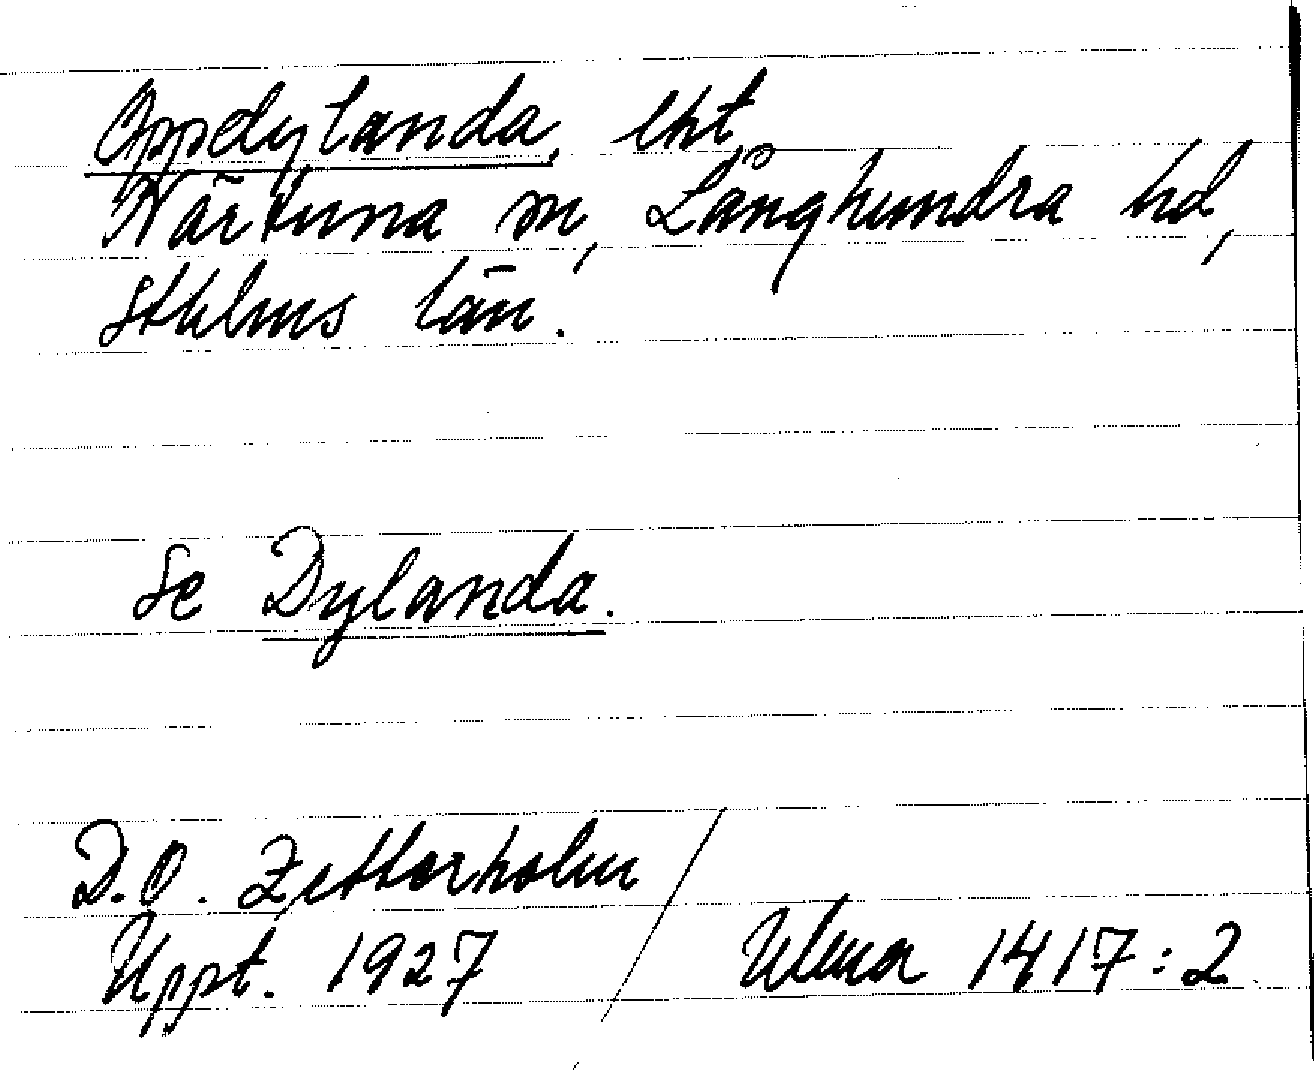 Oppdylanda, lht
Närtuna sn, Långhundra hd,
Sthlms län.
Se Dylanda.
D.O. Zetterholm
Uppt. 1927 / Ulma 1417:2